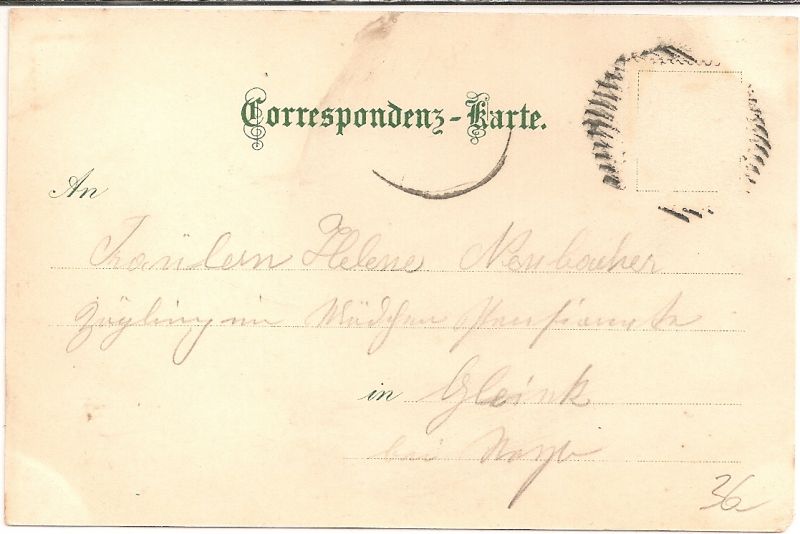 Correspondenz-Karte.
An
Fräulein Helene Neubacher
Zögling im Mädchen Pensionate
in Gleink
bei Steyr
36